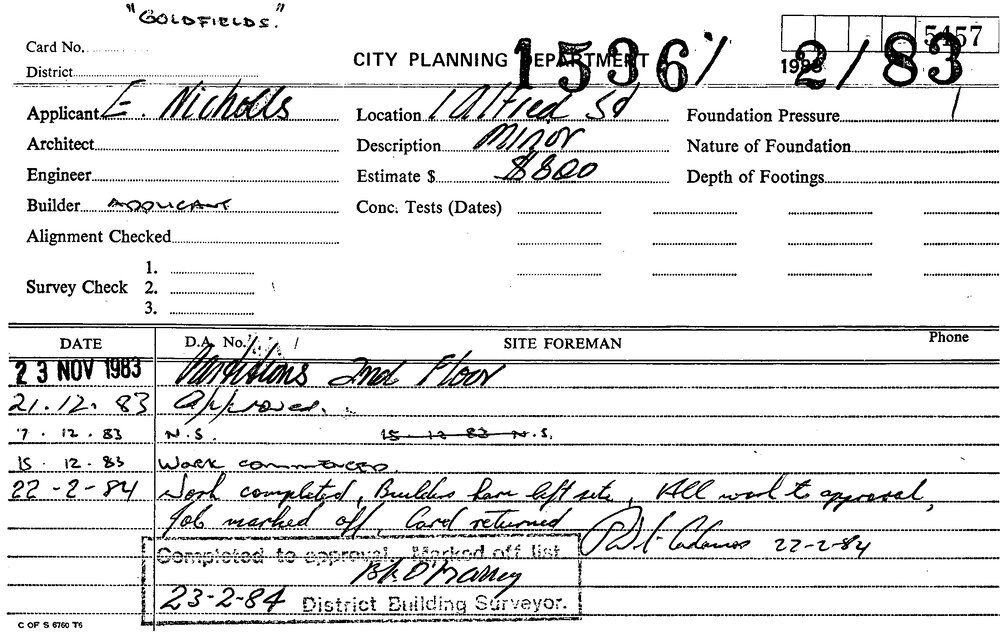 "GOLDFIELDS."
5457
Card No.
CITY PLANNING DEPARTMENT
1536/ 2/83
198
District
Applicant E. Nicholls
Location 1 Alfred St
Foundation Pressure
Architect
Description Minor
Nature of Foundation
Engineer
Estimate $ $800
Depth of Footings
Builder APPLICANT
Conc. Tests (Dates)
Alignment Checked
1.
Survey Check 2.
3.
DATE D.A. No. / SITE FOREMAN Phone
23 NOV 1983 Partitions 2nd Floor
21.12.83 Approved.
7.12.83 N.S. 15-12-83 N.S.
15.12.83 WORK COMMENCED.
22-2-84 Work completed, Builders have left site, All work to approval,
Job marked off, Card returned
22-2-84
Completed to approval. Marked off list
23-2-84 District Building Surveyor.
C OF S 6760 T6